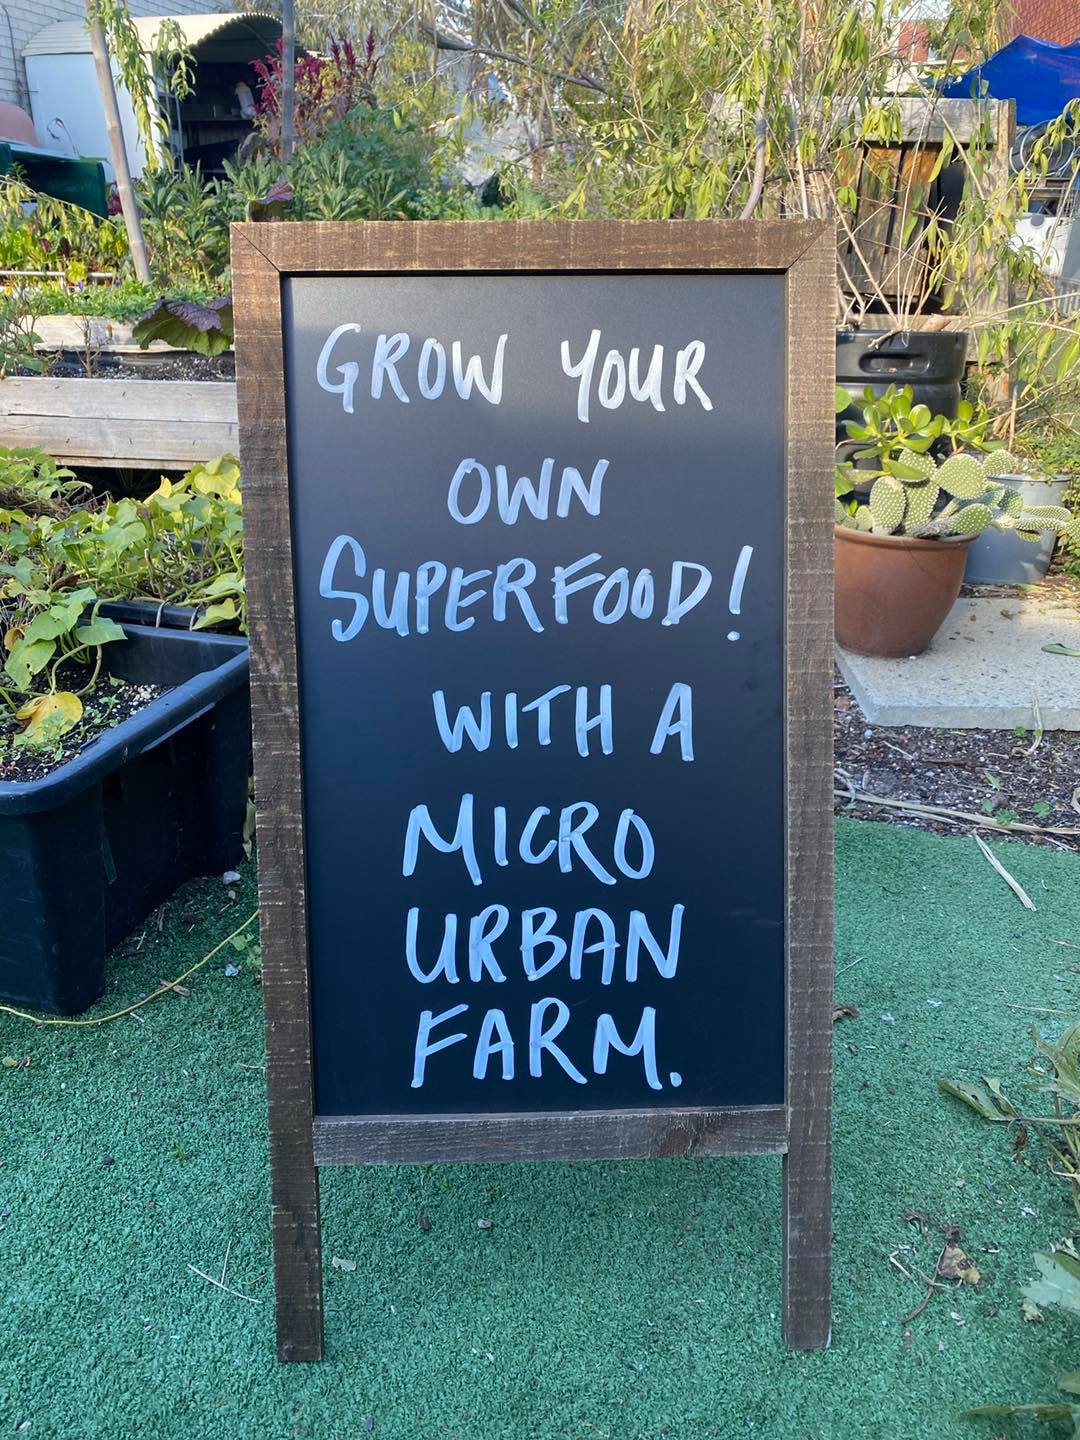 GROW YOUR
OWN
SUPERFOOD!
WITH A
MICRO
URBAN
FARM.